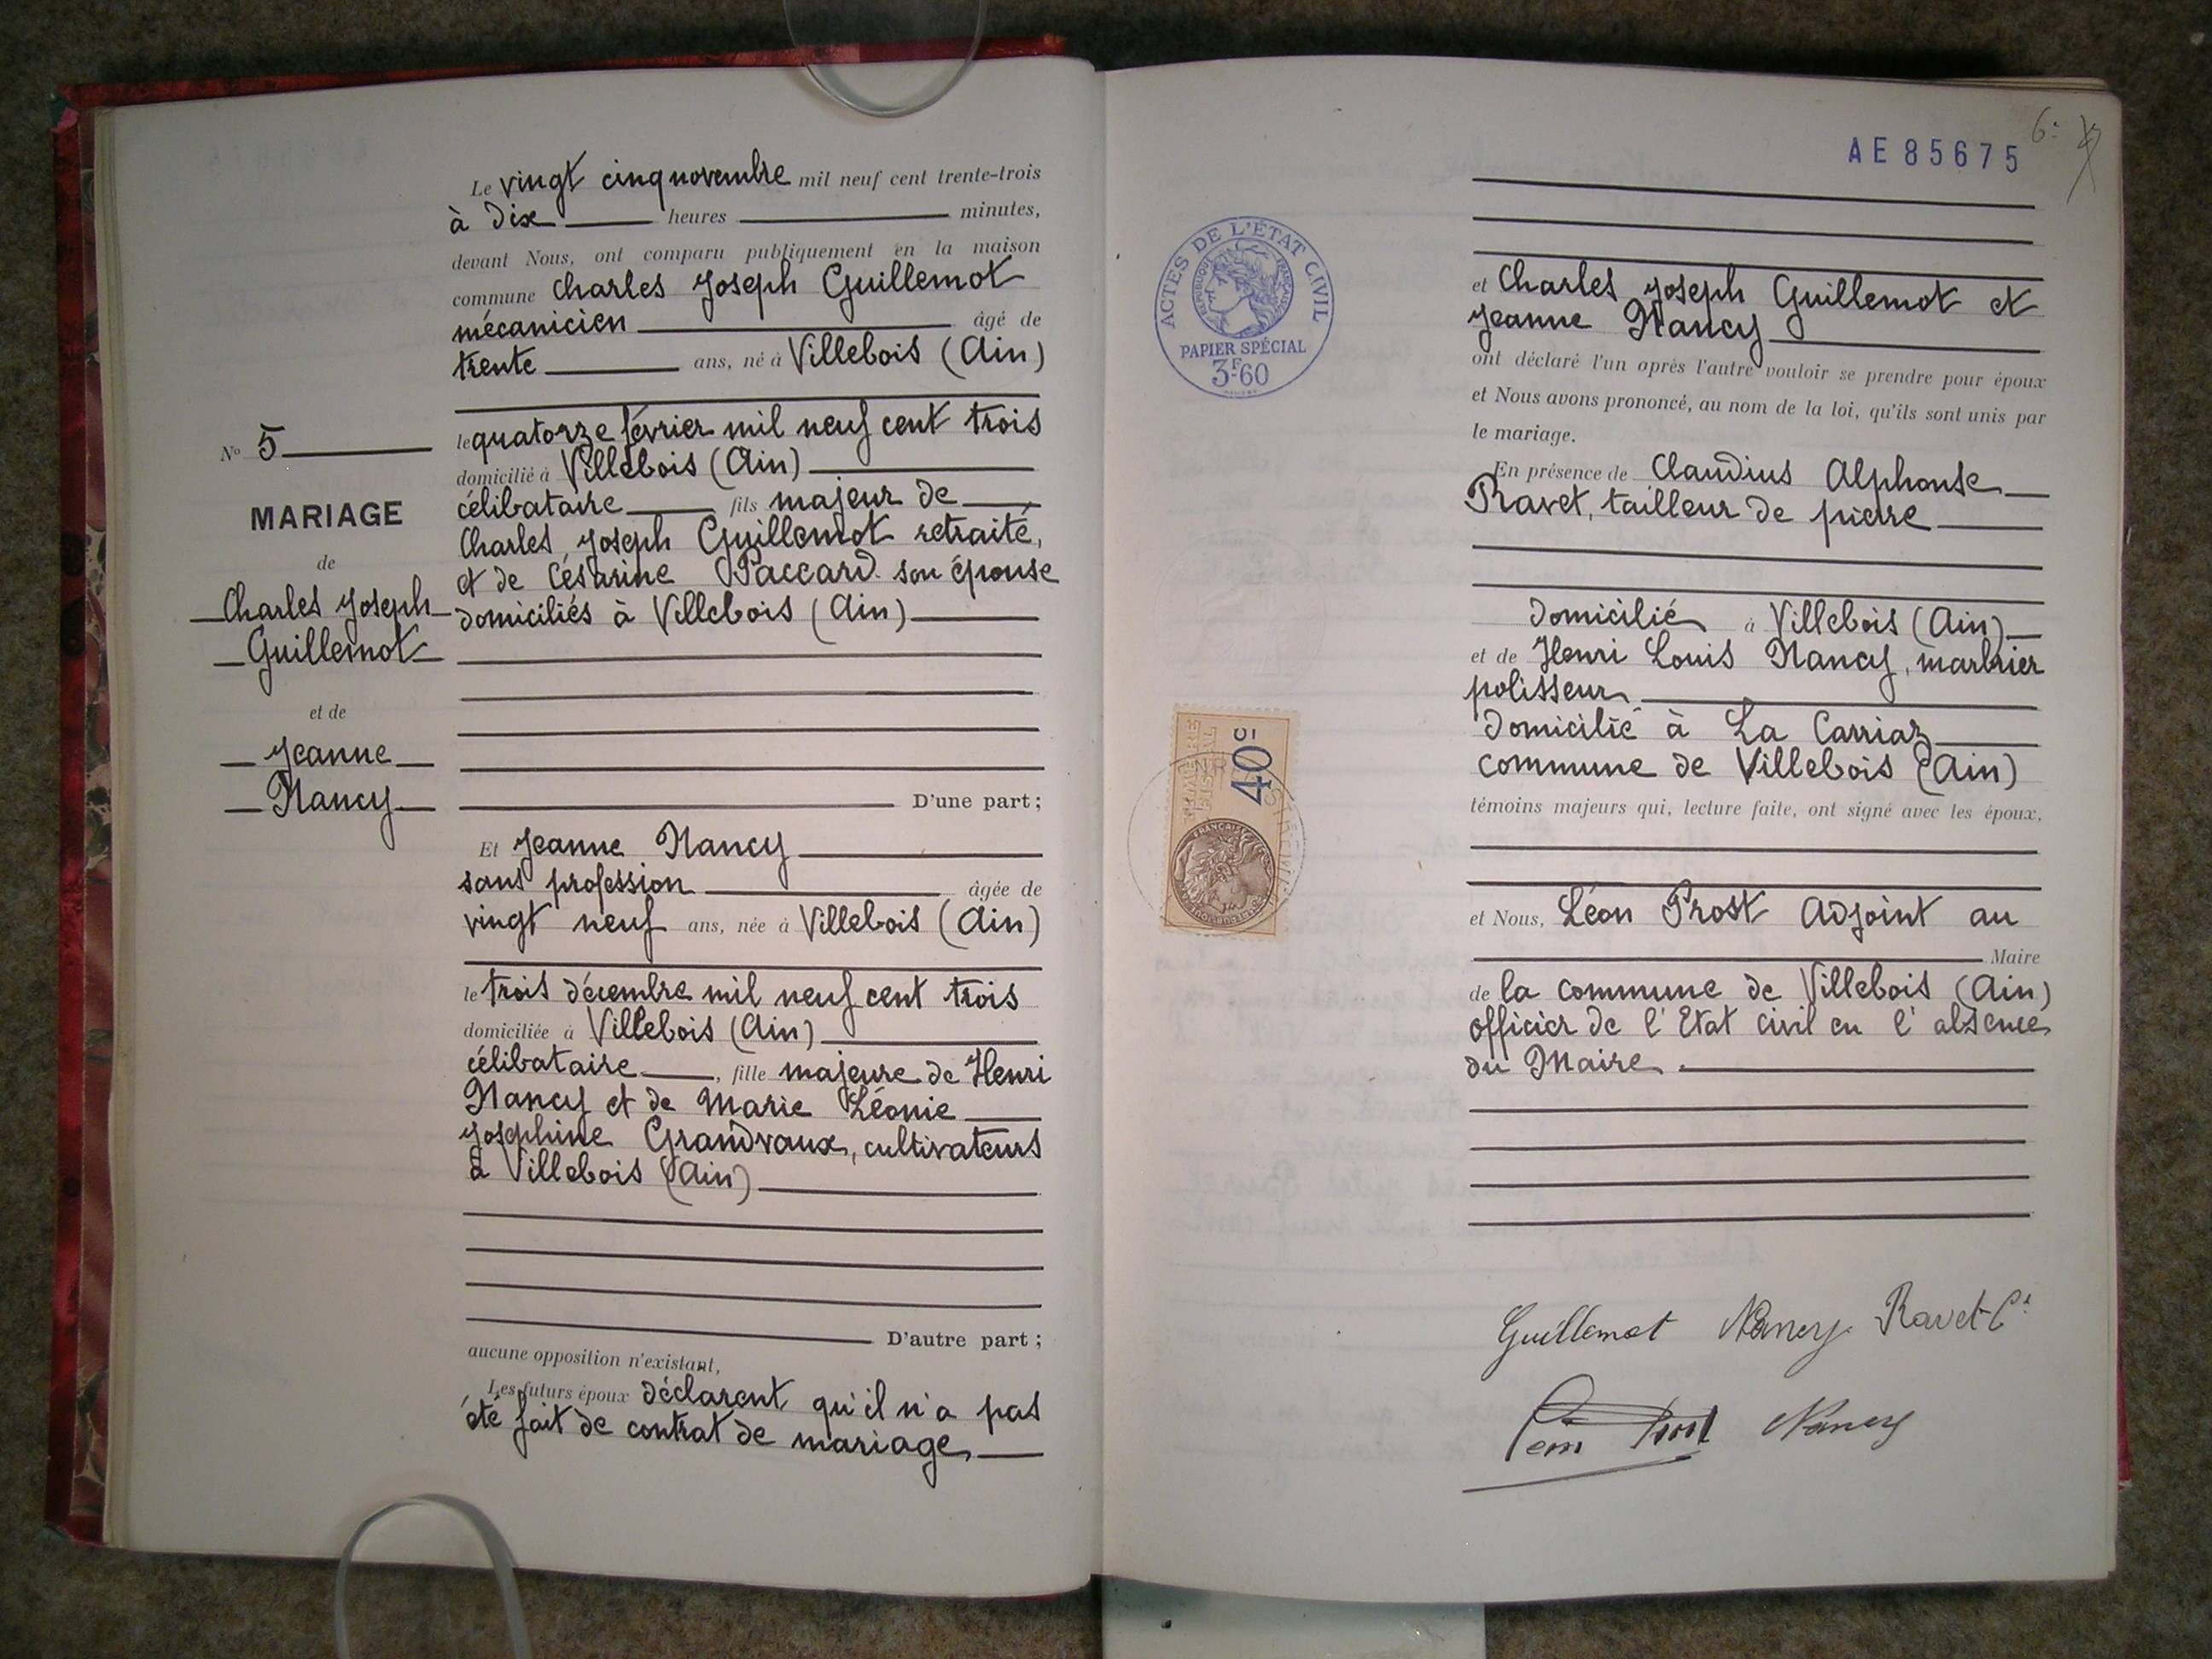 Le vingt cinq novembre mil neuf cent trente-trois
à dix heures minutes,
devant Nous, ont comparu publiquement en la maison
commune Charles Joseph Guillemot
mécanicien âgé de
trente ans, né à Villebois (Ain)
le quatorze février mil neuf cent trois
domicilié à Villebois (Ain)
célibataire fils majeur de
Charles Joseph Guillemot retraité,
et de Césarine Paccard son épouse
domiciliés à Villebois (Ain)
D'une part ;
N° 5
MARIAGE
de
Charles Joseph
Guillemot
et de
Jeanne
Nancy
Et Jeanne Nancy
sans profession âgée de
vingt neuf ans, née à Villebois (Ain)
le trois décembre mil neuf cent trois
domiciliée à Villebois (Ain)
célibataire, fille majeure de Henri
Nancy et de Marie Léonie
Joséphine Grandvaux, cultivateurs
à Villebois (Ain)
D'autre part ;
aucune opposition n'existant,
Les futurs époux déclarent qu'il n'a pas
été fait de contrat de mariage,
AE 85675
6
ACTES DE L'ÉTAT CIVIL
RÉPUBLIQUE FRANÇAISE
PAPIER SPÉCIAL
3F60
TIMBRE
FISCAL
40c
et Charles Joseph Guillemot et
Jeanne Nancy
ont déclaré l'un après l'autre vouloir se prendre pour époux
et Nous avons prononcé, au nom de la loi, qu'ils sont unis par
le mariage.
En présence de Claudius Alphonse
Ravet, tailleur de pierre
domicilié à Villebois (Ain)
et de Henri Louis Nancy, marbrier
polisseur
domicilié à La Carriaz
commune de Villebois (Ain)
témoins majeurs qui, lecture faite, ont signé avec les époux,
et Nous, Léon Prost Adjoint au
Maire
de la commune de Villebois (Ain)
officier de l'Etat civil en l'absence
du Maire
Guillemot Nancy Ravet Cl
Léon Prost Nancy